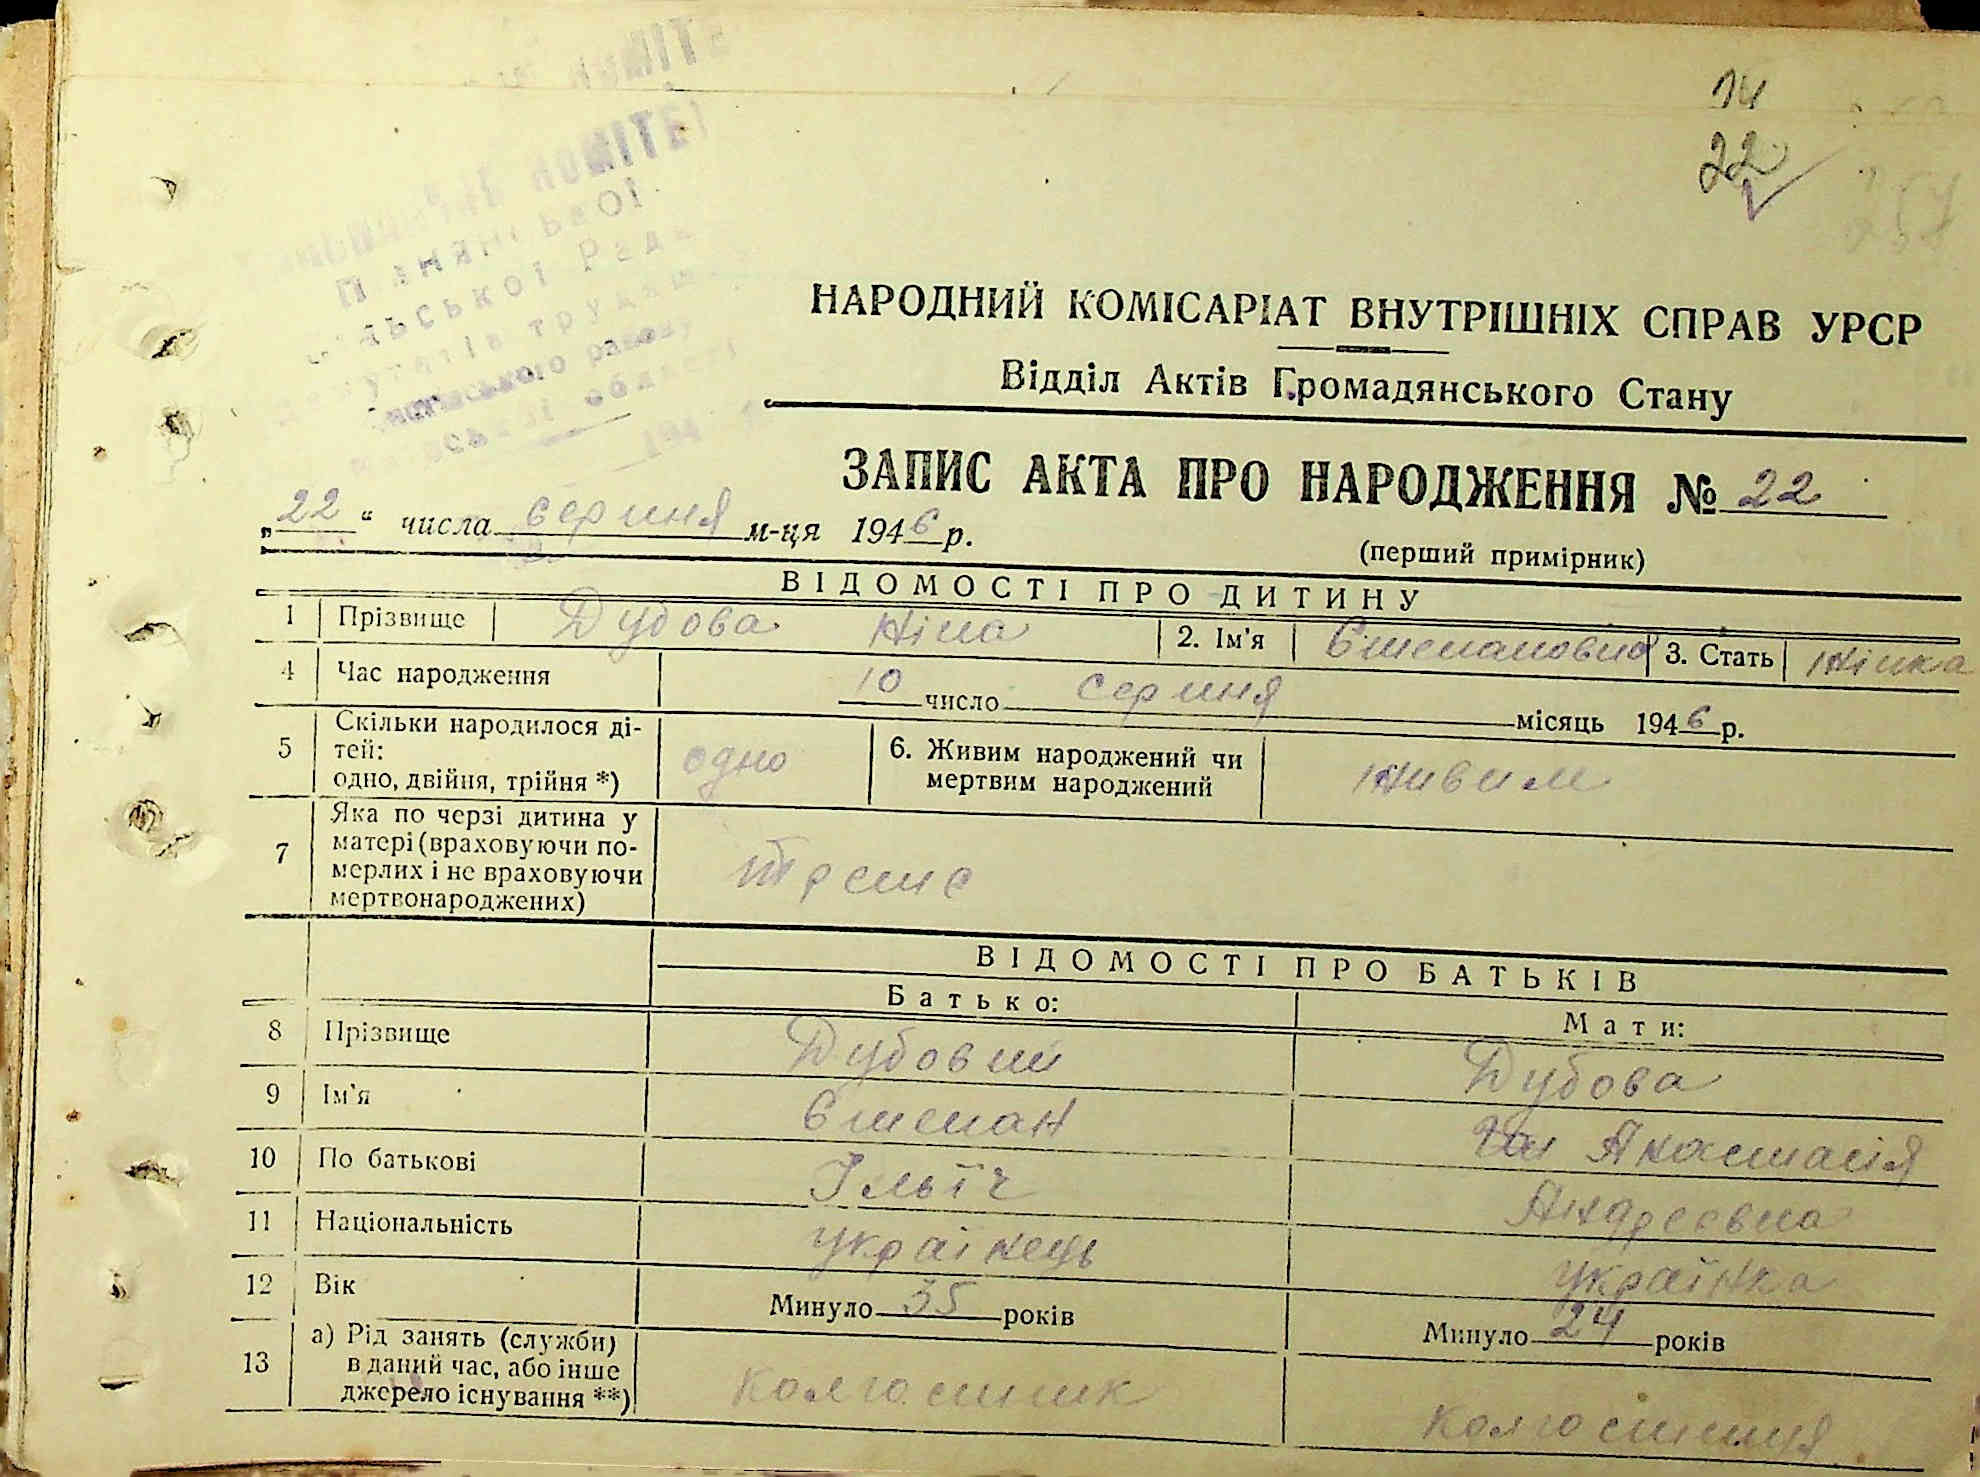 14
22
КОМІТЕТ
сільської Ради
НАРОДНИЙ КОМІСАРІАТ ВНУТРІШНІХ СПРАВ УРСР
Відділ Актів Громадянського Стану
ЗАПИС АКТА ПРО НАРОДЖЕННЯ № 22
„22“ числа серпня м-ця 1946 р.
(перший примірник)
ВІДОМОСТІ ПРО ДИТИНУ
1 Прізвище Дубова Ніна 2. Ім'я Єтепановна 3. Стать жінка
4 Час народження 10 число серпня місяць 1946 р.
5 Скільки народилося ді-
тей:
одно, двійня, трійня *) одно
6. Живим народжений чи
мертвим народжений живим
7 Яка по черзі дитина у
матері (враховуючи по-
мерлих і не враховуючи
мертвонароджених) третє
ВІДОМОСТІ ПРО БАТЬКІВ
Батько: Мати:
8 Прізвище Дубовий Дубова
9 Ім'я Єтепан Анастасія
10 По батькові Ільїч Андреевна
11 Національність українець українка
12 Вік Минуло 35 років Минуло 24 років
13 а) Рід занять (служби)
в даний час, або інше
джерело існування **) колгоспник колгоспниця